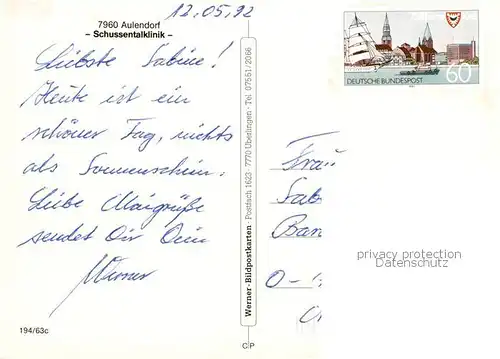 12.05.92
7960 Aulendorf
– Schussentalklinik –
Liebste Sabine!
Heute ist ein
schöner Tag, nichts
als Sonnenschein.
Liebe Maigrüße
sendet Dir Dein
Werner
194/63c
Werner-Bildpostkarten · Postfach 1623 · 7770 Überlingen · Tel 07551/2066
C P
DEUTSCHE BUNDESPOST
60
Frau
Sab
Bar
O-
privacy protection
Datenschutz